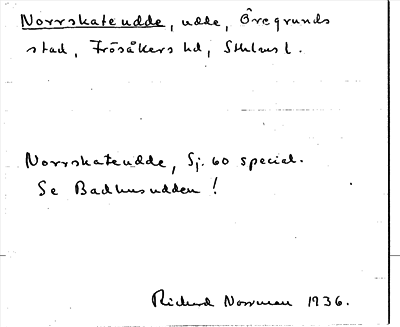 Norrskateudde, udde, Öregrunds
stad, Frösåkers hd, Sthlms l.
Norrskateudde, Sj. 60 special.
Se Badhusudden!
Rickard Norrman 1936.